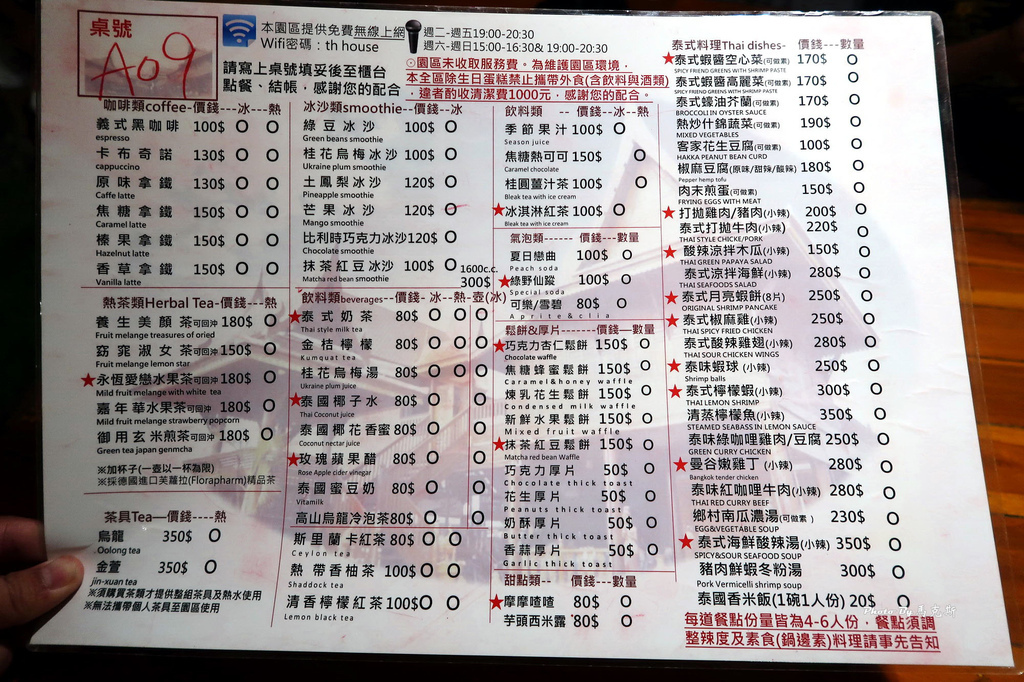 桌號
A09
本園區提供免費無線上網
Wifi密碼：th house
週二-週五19:00-20:30
週六-週日15:00-16:30& 19:00-20:30
請寫上桌號填妥後至櫃台
點餐、結帳，感謝您的配合。
⊙園區未收取服務費。為維護園區環境，
本全區除生日蛋糕禁止攜帶外食(含飲料與酒類)
，違者酌收清潔費1000元，感謝您的配合。
咖啡類coffee-價錢---冰---熱
義式黑咖啡 100$ O O
espresso
卡布奇諾 130$ O O
cappuccino
原味拿鐵 130$ O O
Caffe latte
焦糖拿鐵 150$ O O
Caramel latte
榛果拿鐵 150$ O O
Hazelnut latte
香草拿鐵 150$ O O
Vanilla latte
熱茶類Herbal Tea-價錢---熱
養生美顏茶可回沖 180$ O
Fruit melange treasures of oried
窈窕淑女茶可回沖 150$ O
Fruit melange lemon star
★永恆愛戀水果茶可回沖 180$ O
Mild fruit melange with white tea
嘉年華水果茶可回沖 180$ O
Mild fruit melange strawberry popcorn
御用玄米煎茶可回沖 180$ O
Green tea japan genmcha
※加杯子(一壺以一杯為限)
※採德國進口芙蘿拉(Florapharm)精品茶
茶具Tea—價錢----熱
烏龍 350$ O
Oolong tea
金萱 350$ O
jin-xuan tea
※須購買茶類才提供整組茶具及熱水使用
※無法攜帶個人茶具至園區使用
冰沙類smoothie--價錢---冰
綠豆冰沙 100$ O
Green beans smoothie
桂花烏梅冰沙 100$ O
Ukraine plum smoothie
土鳳梨冰沙 120$ O
Pineapple smoothie
芒果冰沙 120$ O
Mango smoothie
比利時巧克力冰沙120$ O
Chocolate smoothie
抹茶紅豆冰沙 100$ O
Matcha red bean smoothie
1600c.c.
300$
飲料類beverages--價錢- 冰--熱-壺(冰)
★泰式奶茶 80$ O O O
Thai style milk tea
金桔檸檬 80$ O O O
Kumquat tea
桂花烏梅湯 80$ O O O
Ukraine plum juice
★泰國椰子水 80$ O O
Thai Coconut juice
泰國椰花香蜜 80$ O O
Coconut nectar juice
★玫瑰蘋果醋 80$ O O
Rose Apple cider vinegar
泰國蜜豆奶 80$ O O
Vitamilk
高山烏龍冷泡茶80$ O O
斯里蘭卡紅茶 80$ O O
Ceylon tea
熱帶香柚茶 100$ O O
Shaddock tea
清香檸檬紅茶 100$ O O
Lemon black tea
飲料類 -- 價錢---冰---熱
季節果汁 100$ O
Season juice
焦糖熱可可 150$ O
Caramel chocolate
桂圓薑汁茶 100$ O
Bleak tea with ice cream
★冰淇淋紅茶 100$ O
Bleak tea with ice cream
氣泡類------ 價錢---數量
夏日戀曲 100$ O
Peach soda
★綠野仙蹤 100$ O
Special soda
可樂/雪碧 80$ O
Aprite&clia
鬆餅&厚片-------價錢—數量
★巧克力杏仁鬆餅 150$ O
Chocolate waffle
焦糖蜂蜜鬆餅 150$ O
Caramel&honey waffle
煉乳花生鬆餅 150$ O
Condensed milk waffle
新鮮水果鬆餅 150$ O
Mixed fruit waffle
★抹茶紅豆鬆餅 150$ O
Matcha red bean Waffle
巧克力厚片 50$ O
Chocolate thick toast
花生厚片 50$ O
Peanuts thick toast
奶酥厚片 50$ O
Butter thick toast
香蒜厚片 50$ O
Garlic thick toast
甜點類-- 價錢---數量
★摩摩喳喳 80$ O
芋頭西米露 80$ O
泰式料理Thai dishes- 價錢---數量
★泰式蝦醬空心菜(可做素) 170$ O
SPICY FRIEND GREENS WITH SHRIMP PASTE
泰式蝦醬高麗菜(可做素) 170$ O
SPICY FRIEND GREENS WITH SHRIMP PASTE
泰式蠔油芥蘭(可做素) 170$ O
BROCCOLI IN OYSTER SAUCE
熱炒什錦蔬菜(可做素) 190$ O
MIXED VEGETABLES
客家花生豆腐(可做素) 100$ O
HAKKA PEANUT BEAN CURD
椒麻豆腐(原味/甜辣/酸辣) 180$ O
Pepper hemp tofu
肉末煎蛋(可做素) 150$ O
FRYING EGGS WITH MEAT
★打拋雞肉/豬肉(小辣) 200$ O
泰式打拋牛肉(小辣) 220$ O
THAI STYLE CHICKE/PORK
★酸辣涼拌木瓜(小辣) 150$ O
THAI GREEN PAPAYA SALAD
泰式涼拌海鮮(小辣) 280$ O
THAI SEAFOODS SALAD
★泰式月亮蝦餅(8片) 250$ O
ORIGINAL SHRIMP PANCAKE
★泰式椒麻雞(小辣) 250$ O
THAI SPICY FRIED CHICKEN
泰式酸辣雞翅(小辣) 280$ O
THAI SOUR CHICKEN WINGS
★泰味蝦球(小辣) 250$ O
Shrimp balls
★泰式檸檬蝦(小辣) 300$ O
THAI LEMON SHRIMP
清蒸檸檬魚(小辣) 350$ O
STEAMED SEABASS IN LEMON SAUCE
泰味綠咖哩雞肉/豆腐 250$ O
GREEN CURRY CHICKEN
★曼谷嫩雞丁(小辣) 280$ O
Bangkok tender chicken
泰味紅咖哩牛肉(小辣) 280$ O
THAI RED CURRY BEEF
鄉村南瓜濃湯(可做素) 230$ O
EGG&VEGETABLE SOUP
★泰式海鮮酸辣湯(小辣) 350$ O
SPICY&SOUR SEAFOOD SOUP
豬肉鮮蝦冬粉湯 300$ O
Pork Vermicelli shrimp soup
泰國香米飯(1碗1人份) 20$ O
每道餐點份量皆為4-6人份，餐點須調
整辣度及素食(鍋邊素)料理請事先告知